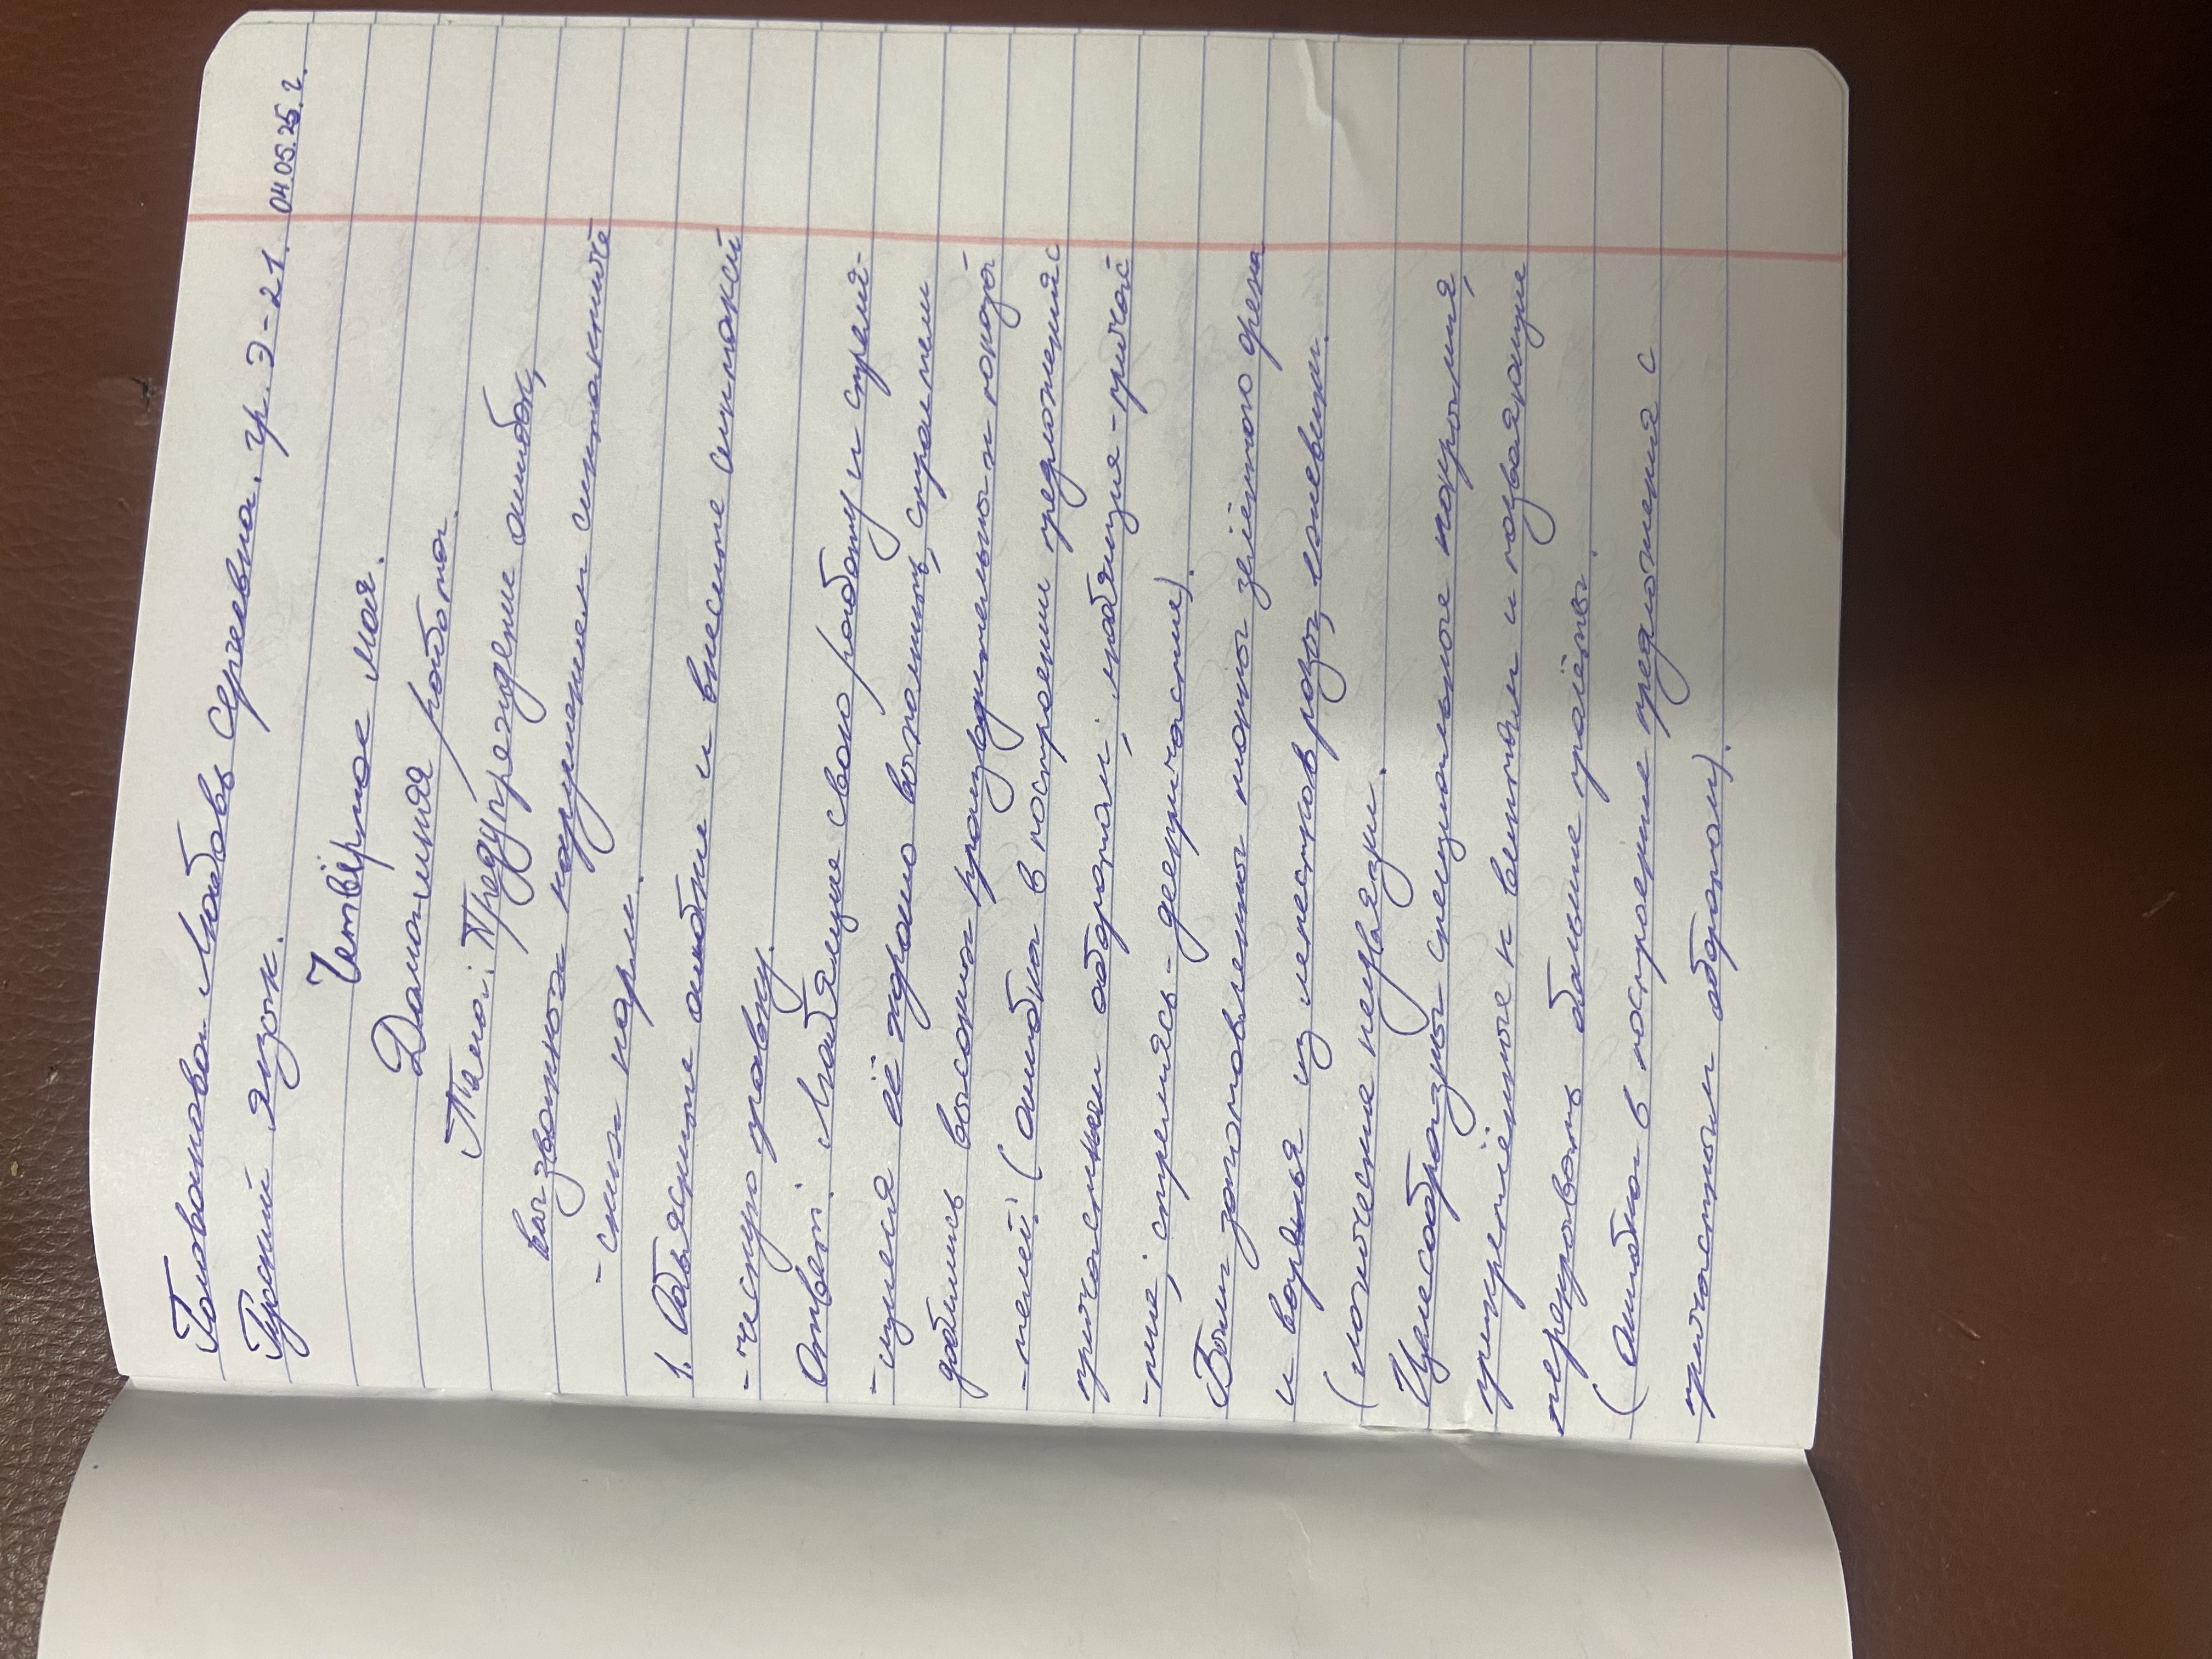 Голованова Любовь Сергеевна. гр. Э-21. 04.05.25.г.
Русский язык.
Четвёрмое мая.
Домашняя работа.
Тема: Предупреждение ошибок,
вызванных нарушением синтаксиче
-ских норм.
1. Объясните ошибки и внесите синтакси
-ческую правку.
Ответ: Любящие свою работу и стремя-
-щиеся её хорошо выполнить, строители
добились высоких производительных показа
-телей. (ошибка в построении предложения с
причастным оборотом; любящие-причас
-тие; стремясь-деепричастие).
Были заготовлены тонны зелёного орена
и варенья из лепестков розы, ежевики.
(логические неувязки.
Целесообразны специальные покрытия,
прикреплённые к вентилям и позволяющие
перекрывать большие пролёты.
(ошибка в построение предложения с
причастным оборотом).